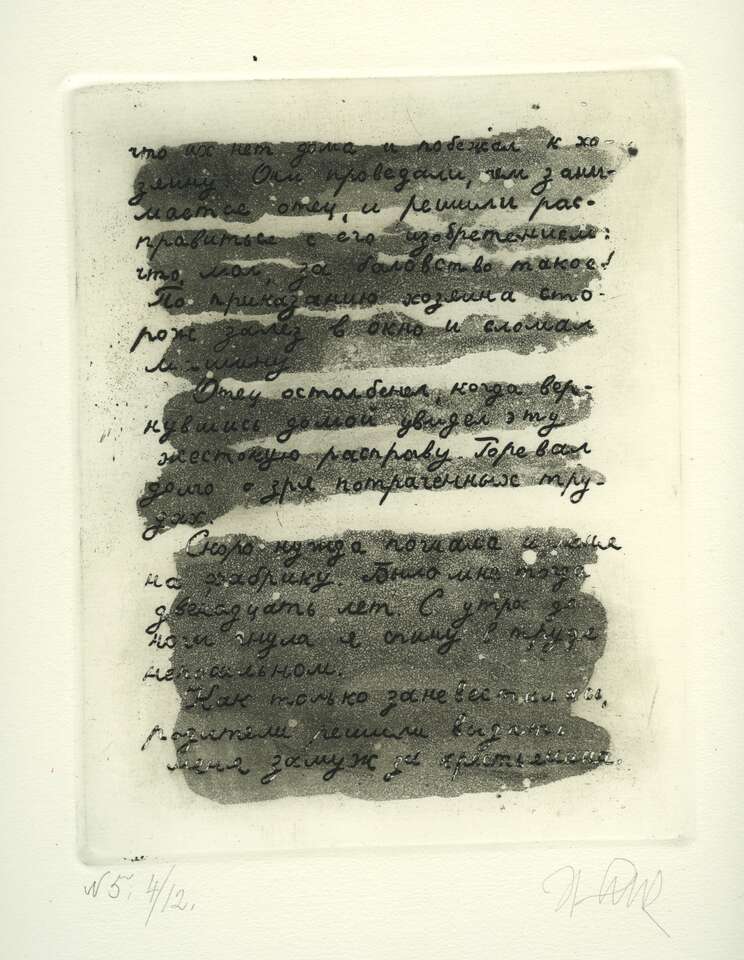 что их нет дома и побежал к хо-
зяину Они проведали, чем зани-
мается отец, и решили рас-
правиться с его изобретением:
что, мол, за баловство такое!
По приказанию хозяина сто-
рож залез в окно и сломал
машину
Отец остолбенел, когда вер-
нувшись домой увидел эту
жестокую расправу. Горевал
долго о зря потраченных тру-
дах.
Скоро нужда погнала и меня
на фабрику. Было мне тогда
двенадцать лет. С утра до
ночи гнула я спину в труде
непосильном.
Как только заневестилась,
родители решили выдать
меня замуж за крестьянина.
N 5. 4/12.